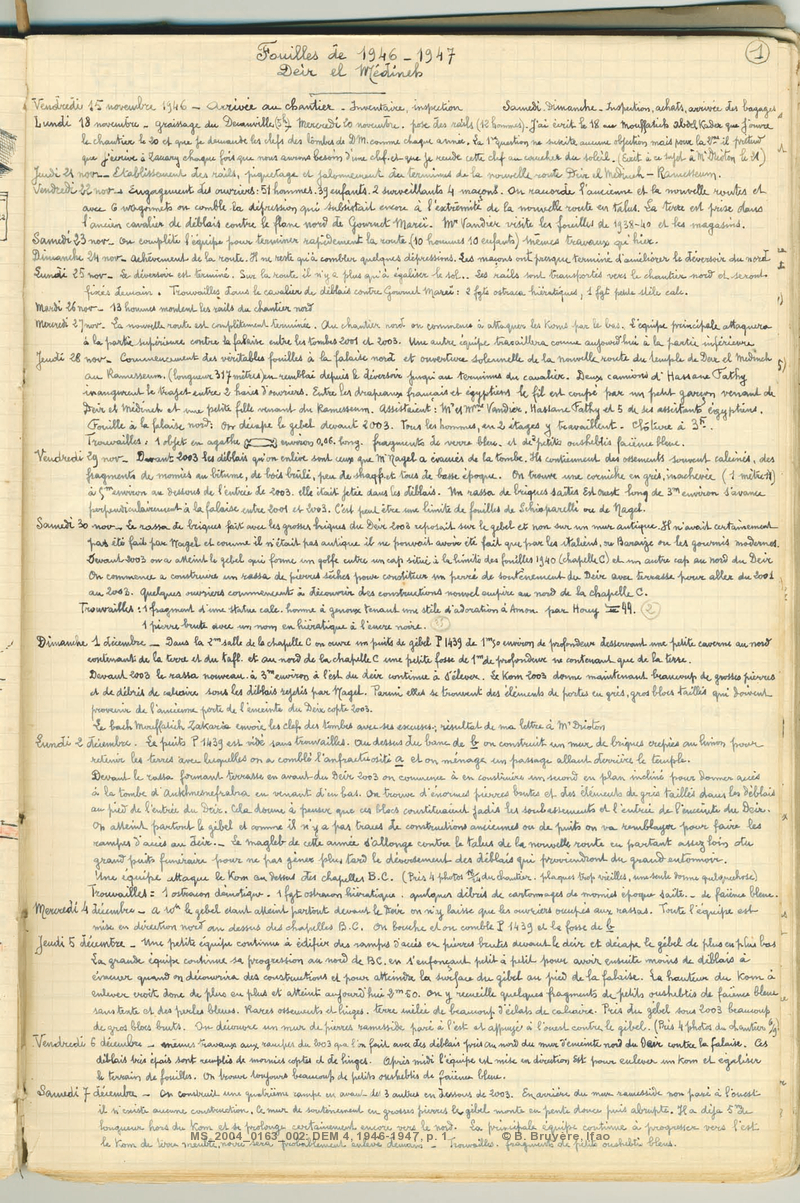 Fouilles de 1946 - 1947
Deir el Médineh
1
Vendredi 15 novembre 1946 - Arrivée au chantier - Inventaire, inspection Samedi, Dimanche - Inspection, achats, arrivée des bagages
Lundi 18 novembre - graissage du Decauville Mercredi 20 novembre - pose des rails (12 hommes). J'ai écrit le 18 au Mouffatich Abdel Kader que j'ouvre
le chantier le 20 et que je demande les clefs des tombes de D.M. comme chaque année. La 1ère question ne suscite aucune objection mais pour la 2ème il prétend
que j'écrive à Louxor chaque fois que nous avons besoin d'une clef et que je rende cette clef au coucher du soleil. (Ecrit à ce sujet à Mr Drioton le 21)
Jeudi 21 nov - Etablissement des rails, piquetage et jalonnement des terminus de la nouvelle route Deir el Médineh - Ramesseum.
Vendredi 22 nov - Engagement des ouvriers: 51 hommes. 39 enfants. 2 surveillants 4 maçons. On raccorde l'ancienne et la nouvelle routes et
avec 6 wagonnets on comble la dépression qui subsistait encore à l'extrémité de la nouvelle route en talus. La terre est prise dans
l'ancien cavalier de déblais contre le flanc nord de Gournet Mareï. Mr Vandier visite les fouilles de 1938-40 et les magasins.
Samedi 23 nov - On complète l'équipe pour terminer rapidement la route (10 hommes 10 enfants) mêmes travaux qu'hier.
Dimanche 24 nov - Achèvement de la route. Il ne reste qu'à combler quelques dépressions. Les maçons ont presque terminé d'améliorer le déversoir du nord
Lundi 25 nov - Le déversoir est terminé. Sur la route il n'y a plus qu'à égaliser le sol. Les rails sont transportés vers le chantier nord et seront
fixés demain. Trouvailles dans le cavalier de déblais contre Gournet Mareï: 2 fgts ostraca hiératiques, 1 fgt petite stèle calc.
Mardi 26 nov - 13 hommes montent les rails du chantier nord
Mercredi 27 nov - La nouvelle route est complètement terminée. Au chantier nord on commence à attaquer les Koms par le bas. L'équipe principale attaquera
à la partie supérieure contre la falaise entre les tombes 2001 et 2003. Une autre équipe travaillera comme aujourd'hui à la partie inférieure.
Jeudi 28 nov - Commencement des véritables fouilles à la falaise nord et ouverture solennelle de la nouvelle route du temple de Deir el Médineh
au Ramesseum. (longueur 317 mètres) en remblai depuis le déversoir jusqu'au terminus du cavalier. Deux camions d'Hassane Fathy
inaugurent le trajet entre 2 haies d'ouvriers. Entre les drapeaux français et égyptiens le fil est coupé par un petit garçon venant de
Deir el Médineh et une petite fille venant du Ramesseum. Assistaient: Mr et Mme Vandier, Hassane Fathy et 5 de ses assistants égyptiens.
Fouille à la falaise nord: On décape le gebel devant 2003. Tous les hommes, en 2 étages y travaillent. Clôture à 3h.
Trouvailles: 1 objet en agathe environ 0,06. long. fragments de verre bleu. et de petits oushebtis faïence bleue.
Vendredi 29 nov - Devant 2003 les déblais qu'on enlève sont ceux que Mr Nagel a évacués de la tombe. Ils contiennent des ossements souvent calcinés, des
fragments de momies au bitume, de bois brûlé, peu de shaqf et tous de basse époque. On trouve une corniche en grès, inachevée (1 mètre)
à 5m environ au dessous de l'entrée de 2003. elle était jetée dans les déblais. Un rassa de briques saïtes Est ouest long de 3m environ s'avance
perpendiculairement à la falaise entre 2001 et 2003. C'est peut être une limite de fouilles de Schiaparelli ou de Nagel.
Samedi 30 nov - Le rassa de briques fait avec les grosses briques du Deir 2003 reposait sur le gebel et non sur un mur antique. Il n'avait certainement
pas été fait par Nagel et comme il n'était pas antique il ne pouvait avoir été fait que par les Italiens, ou Baraize ou les gournis modernes.
Devant 2003 on a atteint le gebel qui forme un golfe entre un cap situé à la limite des fouilles 1940 (chapelle C) et un autre cap au nord du Deir
On commence à construire un rassa de pierres sèches pour constituer un perré de soutènement du Deir avec terrasse pour aller du 2001
au 2003. Quelques ouvriers commencent à découvrir des constructions nouvel empire au nord de la chapelle C.
Trouvailles: 1 fragment d'une statue calc. homme à genoux tenant une stèle d'adoration à Amon par Houy 49. 2
1 pierre brute avec un nom en hiératique à l'encre noire.
Dimanche 1 décembre - Dans la 2ème salle de la chapelle C on ouvre un puits de gebel P 1439 de 1m50 environ de profondeur desservant une petite caverne au nord
contenant de la terre et du tafl. et au nord de la chapelle C une petite fosse de 1m de profondeur ne contenant que de la terre.
Devant 2003 le rassa nouveau à 3m environ à l'est du deir continue à s'élever. Le Kom 2003 donne maintenant beaucoup de grosses pierres
et de débris de calcaire sous les déblais rejetés par Nagel. Parmi elles se trouvent des éléments de portes en grès, gros blocs taillés qui doivent
provenir de l'ancienne porte de l'enceinte du Deir copte 2003.
Le bach Mouffatich Zakaria envoie les clefs des tombes avec ses excuses; résultat de ma lettre à Mr Drioton
Lundi 2 décembre. Le puits P 1439 est vidé sans trouvailles. Au dessus du banc de b on construit un mur de briques crépies au limon pour
retenir les terres avec lesquelles on a comblé l'anfractuosité a et on ménage un passage allant derrière le temple.
Devant le rassa formant terrasse en avant du Deir 2003 on commence à en construire un second en plan incliné pour donner accès
à la tombe d'Ankhnesneferabra en venant d'en bas. On trouve d'énormes pierres brutes et des éléments de grès taillés dans les déblais
au pied de l'entrée du Deir. Cela donne à penser que ces blocs constituaient jadis les soubassements et l'entrée de l'enceinte du Deir.
On atteint partout le gebel et comme il n'y a pas traces de constructions anciennes ou de puits on va remblayer pour faire les
rampes d'accès au deir. - Le maglet de cette année s'allonge contre le talus de la nouvelle route en partant assez loin du
grand puits funéraire pour ne pas gêner plus tard le déversement des déblais qui proviendront du grand entonnoir.
Une équipe attaque le Kom au dessus des chapelles B.C. (Pris 4 photos du chantier. plaques trop vieilles, une seule donne quelque chose)
Trouvailles: 1 ostracon démotique. 1 fgt ostracon hiératique. quelques débris de cartonnages de momies époque saïte. - de faïence bleue.
Mercredi 4 décembre - A 10h le gebel étant atteint partout devant le Deir on n'y laisse que les ouvriers occupés aux rassas. Toute l'équipe est
mise en direction nord au dessus des chapelles B.C. On bouche et on comble P 1439 et la fosse de b
Jeudi 5 décembre - Une petite équipe continue à édifier des rampes d'accès en pierres brutes devant le deir et décape le gebel de plus en plus bas
La grande équipe continue sa progression au nord de BC. en s'enfonçant petit à petit pour avoir ensuite moins de déblais à
évacuer quand on découvrira des constructions et pour atteindre la surface du gebel au pied de la falaise. La hauteur du Kom à
enlever croît donc de plus en plus et atteint aujourd'hui 2m50. On y recueille quelques fragments de petits oushebtis de faïence bleue
sans texte et des perles bleues. Rares ossements et linges. terre mêlée de beaucoup d'éclats de calcaire. Près du gebel sous 2003 beaucoup
de gros blocs bruts. On découvre un mur de pierres ramesside paré à l'est et appuyé à l'ouest contre le gebel. (Pris 4 photos du chantier)
Vendredi 6 décembre - mêmes travaux aux rampes du 2003 que l'on fait avec des déblais pris au nord du mur d'enceinte nord du Deir contre la falaise. Ces
déblais très épais sont remplis de momies coptes et de linges. Après midi l'équipe est mise en direction Est pour enlever un Kom et égaliser
le terrain de fouilles. On trouve toujours beaucoup de petits oushebtis de faïence bleue.
Samedi 7 décembre - On construit une quatrième rampe en avant de 3 autres en dessous de 2003. En arrière du mur ramesside non paré à l'ouest
il n'existe aucune construction, le mur de soutènement en grosses pierres le gebel monte en pente douce puis abrupte. Il a déjà 5m de
longueur hors du Kom et se prolonge certainement encore vers le nord. La principale équipe continue à progresser vers l'est
le Kom de terre meuble, noire sera probablement enlevé demain - Trouvailles. fragments de petits oushebtis bleus.
MS_2004_0163_002: DEM 4, 1946-1947, p. 1 © B. Bruyère, Ifao